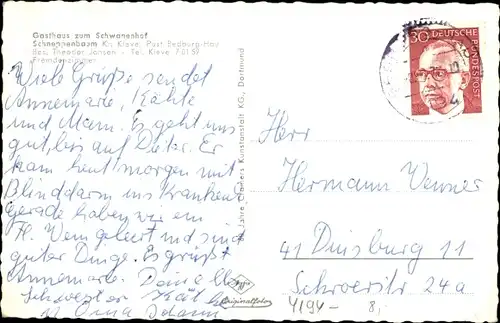 Gasthaus zum Schwanenhof
Schneppenbaum Kr. Kleve, Post Bedburg-Hau
Bes. Theodor Jansen - Tel. Kleve 7 01 52
Fremdenzimmer
Viele Grüße sendet
Annemarie, Käthe
und Mam. Es geht uns
gut, bis auf Er
kam heut morgen mit
Blinddarm ins Krankenh.
Gerade haben wir ein
Fl. Wein geleert und sind
guter Dinge. Es grüßt
Annemarie.
Schwester Käthe
u. Oma
Cramers Kunstanstalt KG., Dortmund
Originalfoto
30
DEUTSCHE BUNDESPOST
Herr
Hermann Wenner
41 Duisburg 11
Schroerstr 24a
4194-
8,